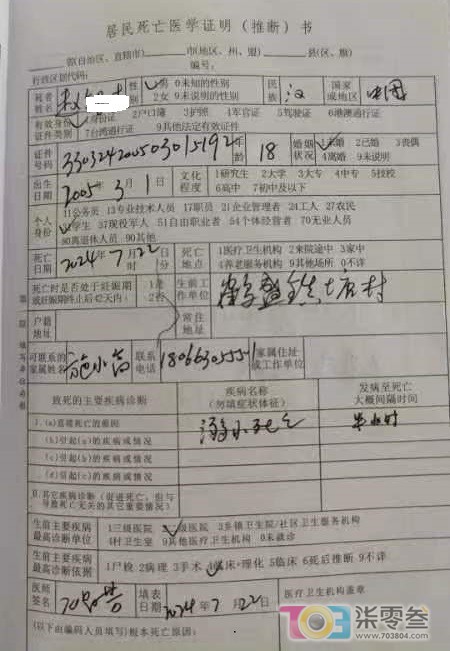 居民死亡医学证明（推断）书
省(自治区、直辖市) 市(地区、州、盟) 县(区、旗)
行政区划代码： 编号：
死者姓名 性别 1男 0未知的性别 2女 9未说明的性别 民族 汉 国家或地区 中国
有效身份证件类别 1身份证 2户口簿 3护照 4军官证 5驾驶证 6港澳通行证 7台湾通行证 9其他法定有效证件
证件号码 330324200503015192 年龄 18 婚姻状况 1未婚 2已婚 3丧偶 4离婚 9未说明
出生日期 2005年3月1日 文化程度 1研究生 2大学 3大专 4中专 5技校 6高中 7初中及以下
个人身份 11公务员 13专业技术人员 17职员 21企业管理者 24工人 27农民
31学生 37现役军人 51自由职业者 54个体经营者 70无业人员
80离退休人员 90其他
死亡日期 2024年7月22日 时 分 死亡地点 1医疗卫生机构 2来院途中 3家中 4养老服务机构 9其他场所 0不详
死亡时是否处于妊娠期或妊娠期终止后42天内： 1是 2否 生前工作单位
户籍地址 常住地址
可联系的家属姓名 联系电话 18066305551 家属住址或工作单位
致死的主要疾病诊断 疾病名称(勿填症状体征) 发病至死亡大概间隔时间
I.(a)直接死亡的原因 溺水死亡
(b)引起(a)的疾病或情况
(c)引起(b)的疾病或情况
(d)引起(c)的疾病或情况
II.其它疾病诊断（促进死亡，但与导致死亡无关的其它重要情况）
生前主要疾病最高诊断单位 1三级医院 2二级医院 3乡镇卫生院/社区卫生服务机构 4村卫生室 9其他医疗卫生机构 0未就诊
生前主要疾病最高诊断依据 1尸检 2病理 3手术 4临床+理化 5临床 6死后推断 9不详
医师签名 填表日期 2024年7月22日 医疗卫生机构盖章
(以下由编码人员填写)根本死亡原因：
703 柒零叁
www.703804.com